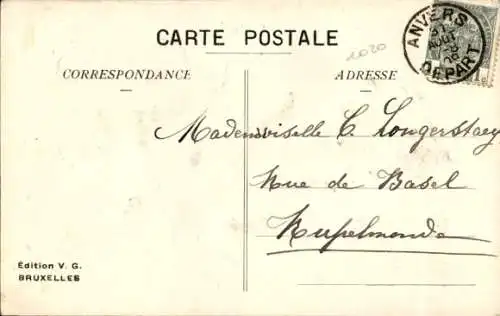 CARTE POSTALE
1020
CORRESPONDANCE
ADRESSE
ANVERS
DEPART
Mademoiselle C. Longerstaey
Rue de Basel
Rupelmonde
Édition V. G.
BRUXELLES